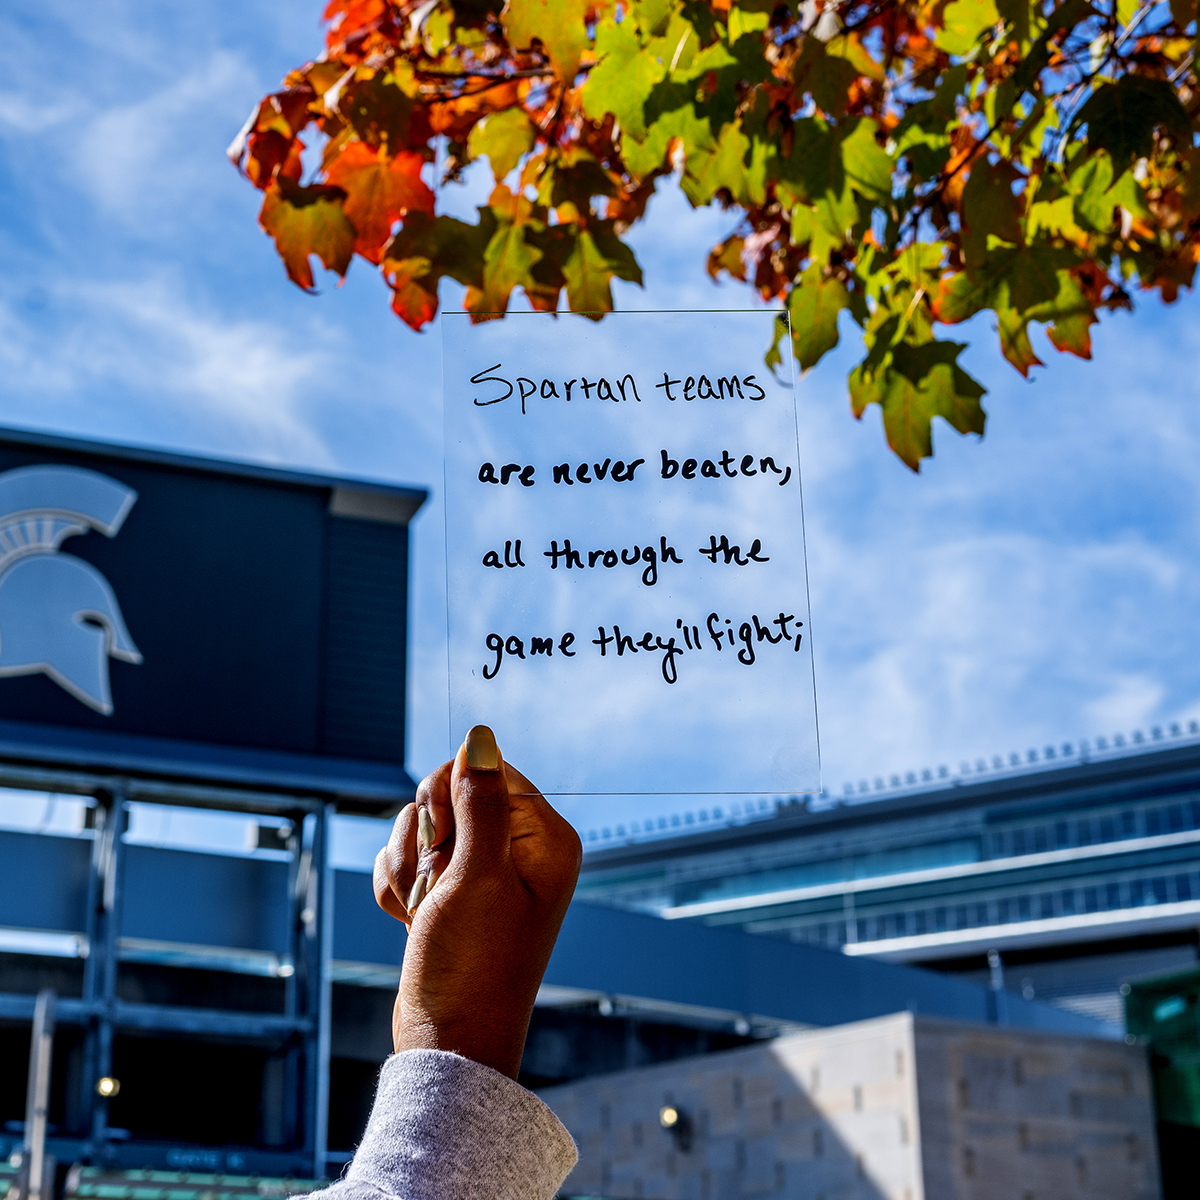 Spartan teams
are never beaten,
all through the
game they'll fight;